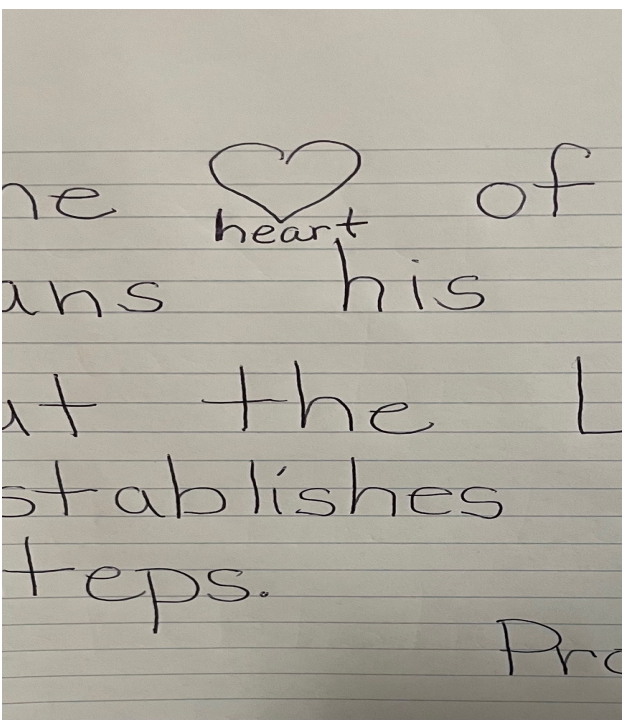 he of
heart
ans his
ut the L
stablishes
teps.
Pro